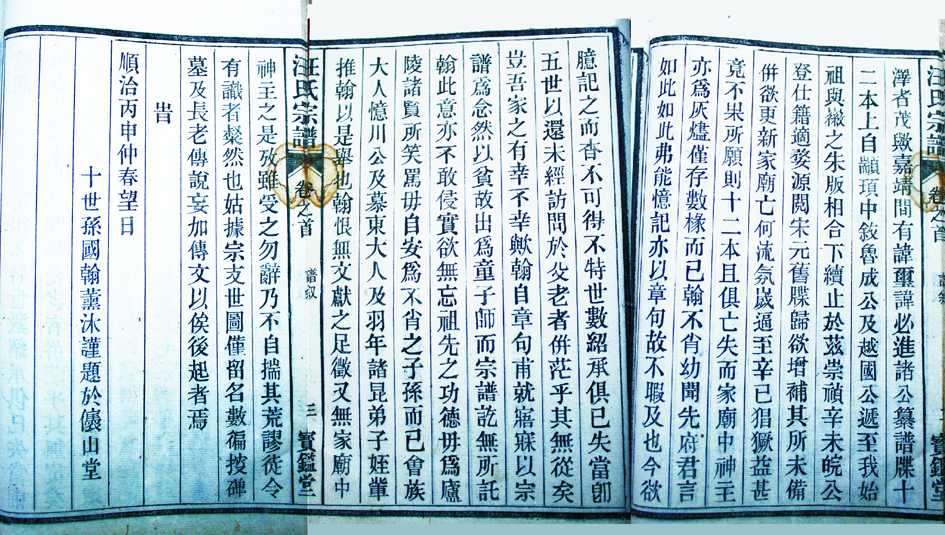 澤者茂歟嘉靖間有諱璽諱必進諸公纂譜牒十
二本上自顓頊中敘魯成公及越國公遞至我始
祖與徽之朱版相合下續止於茲崇禎辛未皖公
登仕籍適婺源閱宋元舊牒歸欲增補其所未備
併欲更新家廟亡何流氛歲逼至辛巳猖獗益甚
竟不果所願則十二本且俱亡失而家廟中神主
亦為灰燼僅存數椽而已翰不肖幼聞先府君言
如此如此弗能憶記亦以章句故不暇及也今欲
汪氏宗譜 卷之首 譜叙 寶鑑堂
臆記之而杳不可得不特世數紹承俱已失當卽
五世以還未經訪問於父老者併茫乎其無從矣
豈吾家之有幸不幸歟翰自章句甫就寤寐以宗
譜爲念然以貧故出爲童子師而宗譜訖無所託
翰此意亦不敢侵實欲無忘祖先之功德毋爲廬
陵諸賢所笑罵毋自安爲不肖之子孫而已會族
大人憶川公及慕東大人及羽年諸昆弟子姪輩
推翰以是舉也翰恨無文獻之足徵又無家廟中
汪氏宗譜 卷之首 譜叙 三 寶鑑堂
神主之是攷雖受之勿辭乃不自揣其荒謬徒令
有識者粲然也姑據宗支世圖僅留名數徧搜碑
墓及長老傳說妄加傳文以俟後起者焉
旹
順治丙申仲春望日
十世孫國翰薰沐謹題於儇山堂